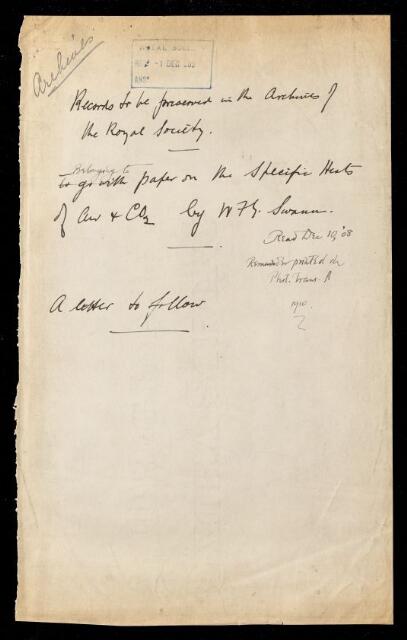 Archives
ROYAL SOCIETY
REC 1 DEC 190
ANS
Records to be preserved in the Archives of
the Royal Society.
Belonging to
to go with paper on the Specific Heats
of Air & CO2 by W F G. Swann.
Read Dec 10, '08
printed in
Phil. Trans. A
1910.
A letter to follow